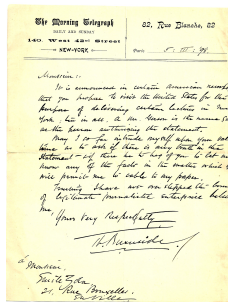 The Morning Telegraph
DAILY AND SUNDAY
140. West 42nd Street
NEW-YORK
82, Rue Blanche, 82
Paris
Monsieur:
It is announced in certain American
that you propose to visit the United States for the
purpose of delivering certain lectures in New
York
as the person authorizing the statement.
May I so far intrude myself upon your
time as to ask if there is any truth in the
statement - if there be to beg of you to let me
know any of the facts in the matter which
will permit me to cable to my paper.
Trusting I have not over stepped the
of legitimate journalistic enterprise believe
me,
Yours Very Respectfully
Monsieur
21, Rue Bruxelles